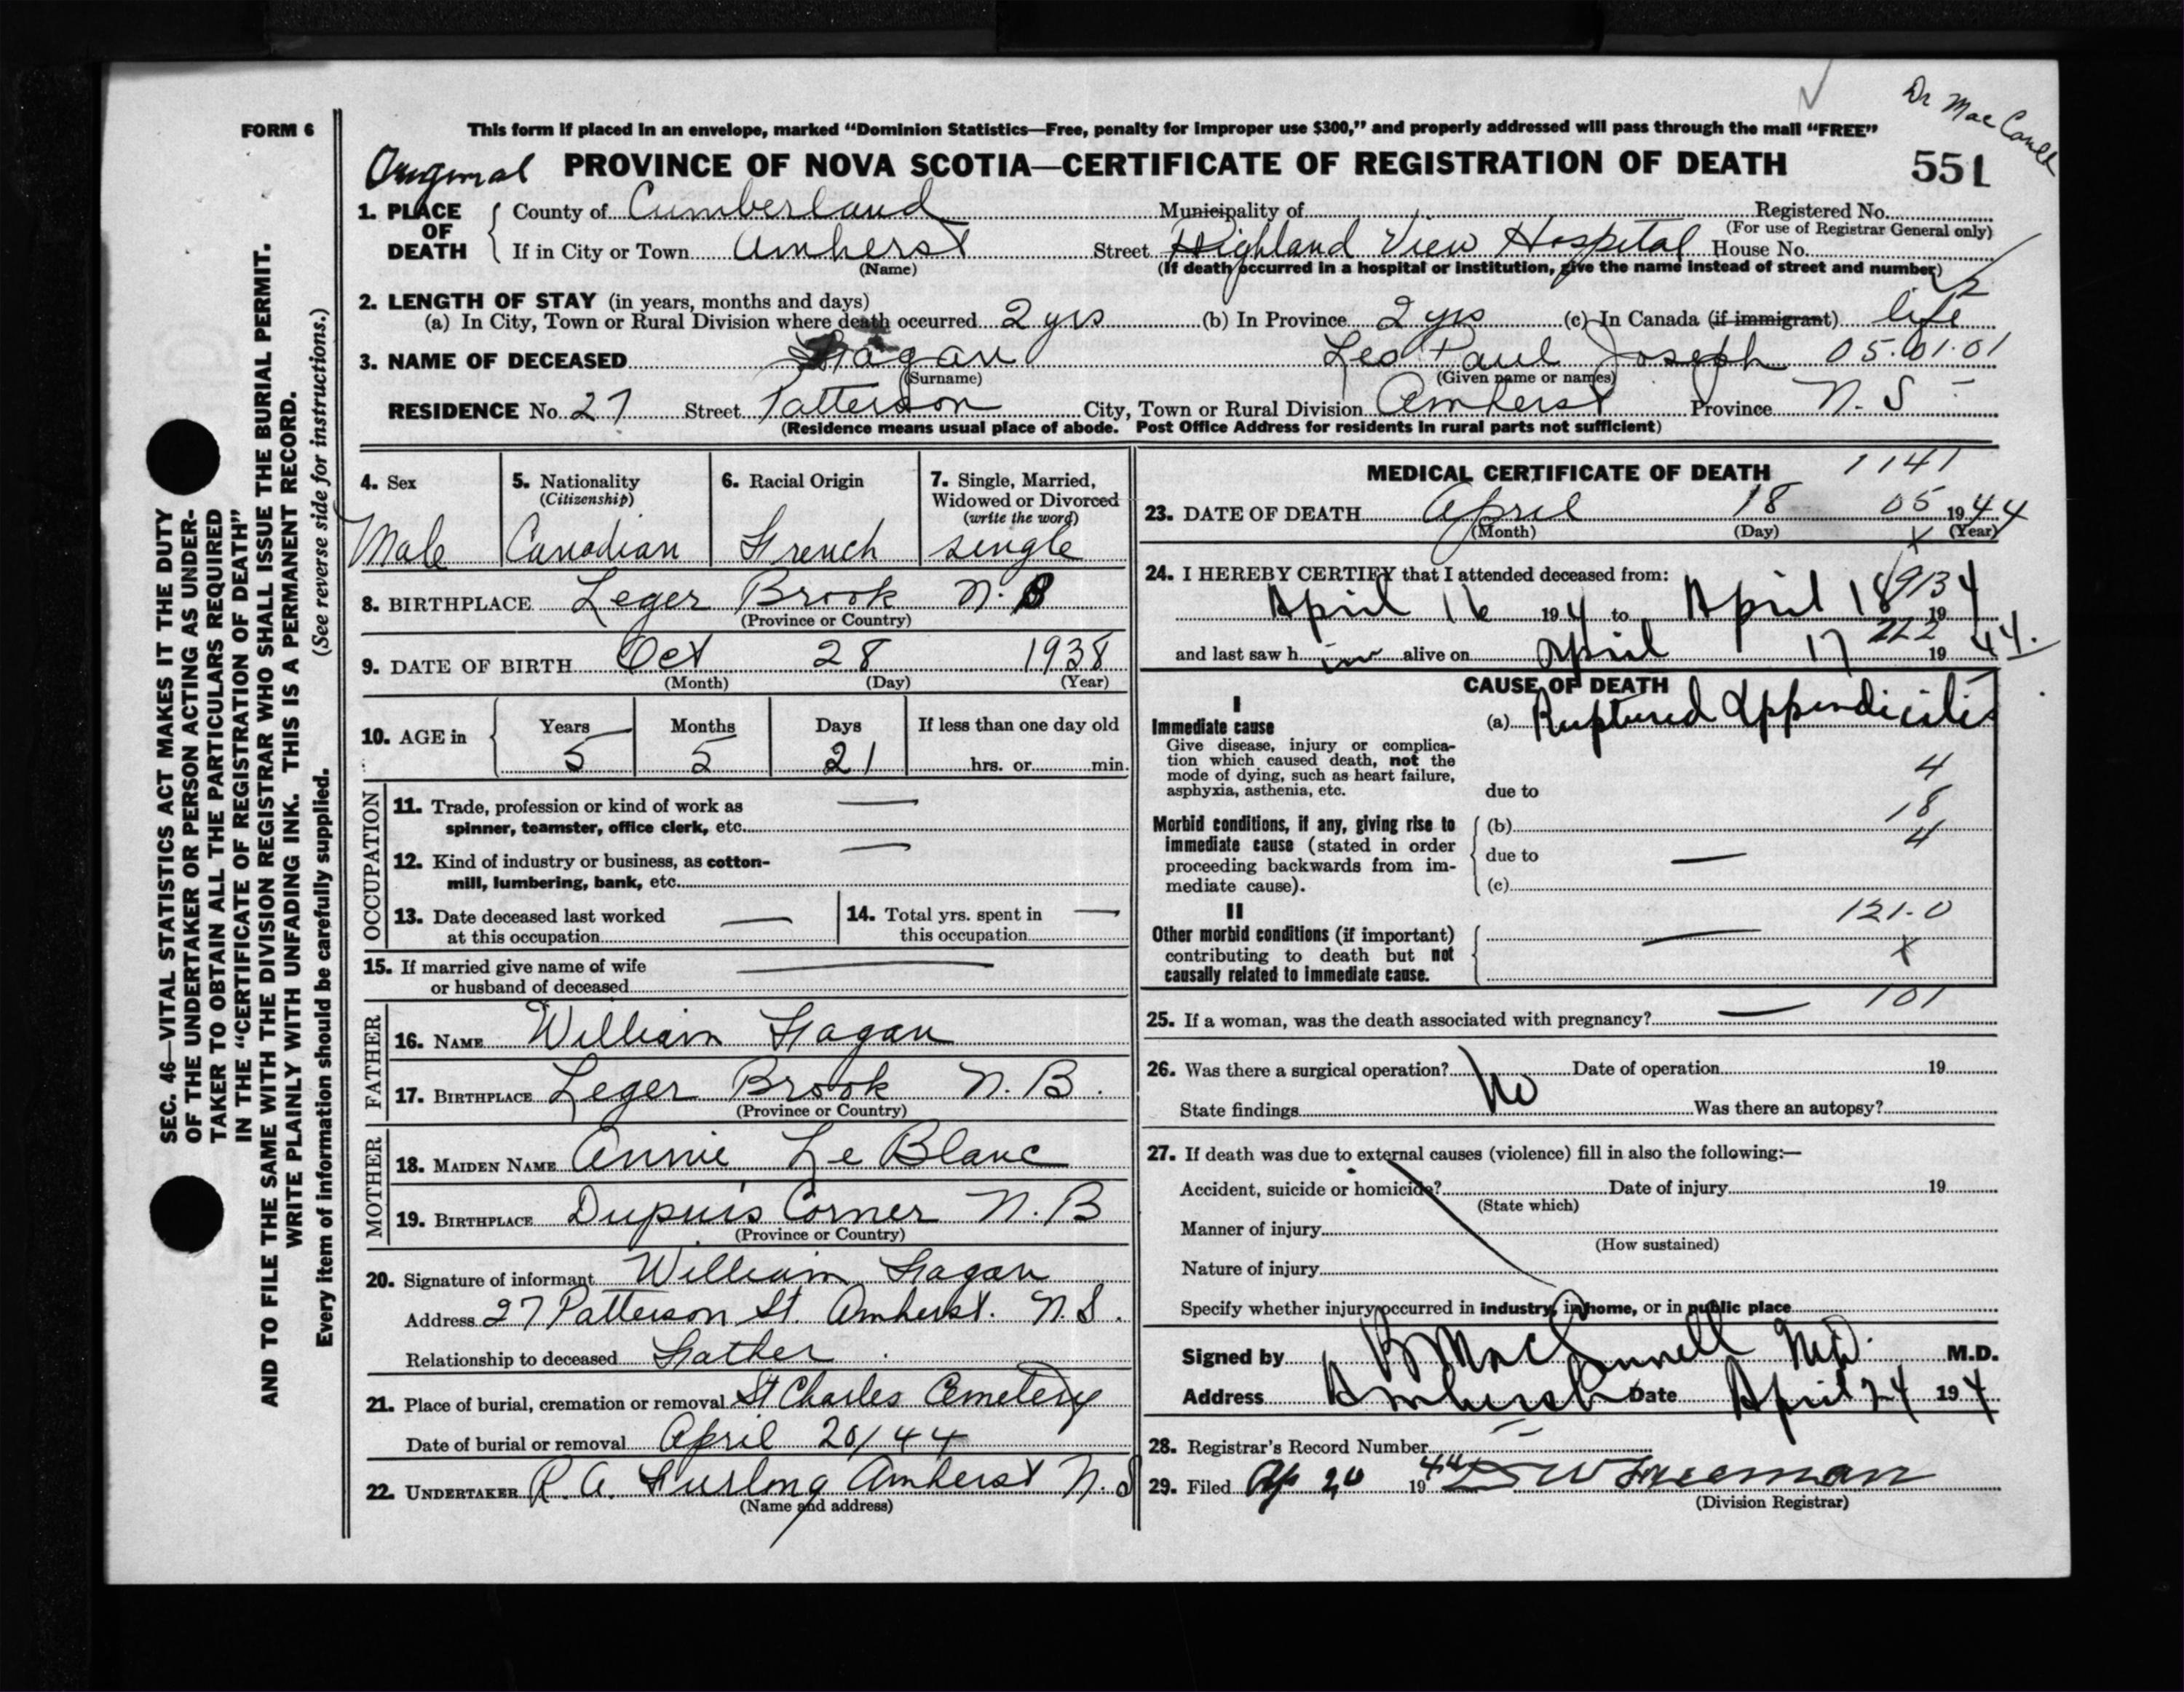 Dr Mac
FORM 6
This form if placed in an envelope, marked "Dominion Statistics—Free, penalty for improper use $300," and properly addressed will pass through the mail "FREE"
Original PROVINCE OF NOVA SCOTIA—CERTIFICATE OF REGISTRATION OF DEATH 551
1. PLACE OF DEATH County of Cumberland Municipality of Registered No.
(For use of Registrar General only)
If in City or Town Amherst Street Highland View Hospital House No.
(Name) (If death occurred in a hospital or institution, give the name instead of street and number)
2. LENGTH OF STAY (in years, months and days)
(a) In City, Town or Rural Division where death occurred 2 yrs (b) In Province 2 yrs (c) In Canada (if immigrant) life
3. NAME OF DECEASED Fagan Leo Paul Joseph 05.01.01
(Surname) (Given name or names)
RESIDENCE No. 27 Street Patterson City, Town or Rural Division Amherst Province N.S
(Residence means usual place of abode. Post Office Address for residents in rural parts not sufficient)
4. Sex 5. Nationality 6. Racial Origin 7. Single, Married,
(Citizenship) Widowed or Divorced
(write the word)
Male Canadian French single
8. BIRTHPLACE Leger Brook N.B
(Province or Country)
9. DATE OF BIRTH Oct 28 1938
(Month) (Day) (Year)
10. AGE in Years Months Days If less than one day old
5 5 21 hrs. or min.
OCCUPATION
11. Trade, profession or kind of work as
spinner, teamster, office clerk, etc. —
12. Kind of industry or business, as cotton-
mill, lumbering, bank, etc. —
13. Date deceased last worked
at this occupation —
14. Total yrs. spent in
this occupation —
15. If married give name of wife
or husband of deceased —
FATHER
16. NAME William Fagan
17. BIRTHPLACE Leger Brook N.B.
(Province or Country)
MOTHER
18. MAIDEN NAME Annie Le Blanc
19. BIRTHPLACE Dupuis Corner N.B
(Province or Country)
20. Signature of informant William Fagan
Address 27 Patterson St. Amherst. N.S.
Relationship to deceased Father.
21. Place of burial, cremation or removal St Charles Cemetery
Date of burial or removal April 20/44
22. UNDERTAKER R.A. Furlong Amherst N.S
(Name and address)
MEDICAL CERTIFICATE OF DEATH 1141
23. DATE OF DEATH April 18 05 1944
(Month) (Day) (Year)
x
24. I HEREBY CERTIFY that I attended deceased from:
April 16 194 4 to April 18 19 4
and last saw h im alive on April 17 222 19 44.
CAUSE OF DEATH
I
Immediate cause (a) Ruptured Appendicitis
Give disease, injury or complica-
tion which caused death, not the
mode of dying, such as heart failure,
asphyxia, asthenia, etc. due to 4
18
Morbid conditions, if any, giving rise to (b)
immediate cause (stated in order due to — 4
proceeding backwards from im-
mediate cause). (c)
II 121.0
Other morbid conditions (if important) —
contributing to death but not x
causally related to immediate cause.
101
25. If a woman, was the death associated with pregnancy? —
26. Was there a surgical operation? No Date of operation 19
State findings Was there an autopsy?
27. If death was due to external causes (violence) fill in also the following:—
Accident, suicide or homicide? Date of injury 19
(State which)
Manner of injury
(How sustained)
Nature of injury
Specify whether injury occurred in industry, in home, or in public place
Signed by M.D. M.D.
Address Amherst Date April 24 194 4
28. Registrar's Record Number
29. Filed Ap 20 1944
(Division Registrar)
SEC. 46—VITAL STATISTICS ACT MAKES IT THE DUTY
OF THE UNDERTAKER OR PERSON ACTING AS UNDER-
TAKER TO OBTAIN ALL THE PARTICULARS REQUIRED
IN THE "CERTIFICATE OF REGISTRATION OF DEATH"
AND TO FILE THE SAME WITH THE DIVISION REGISTRAR WHO SHALL ISSUE THE BURIAL PERMIT.
WRITE PLAINLY WITH UNFADING INK. THIS IS A PERMANENT RECORD.
Every item of information should be carefully supplied. (See reverse side for instructions.)